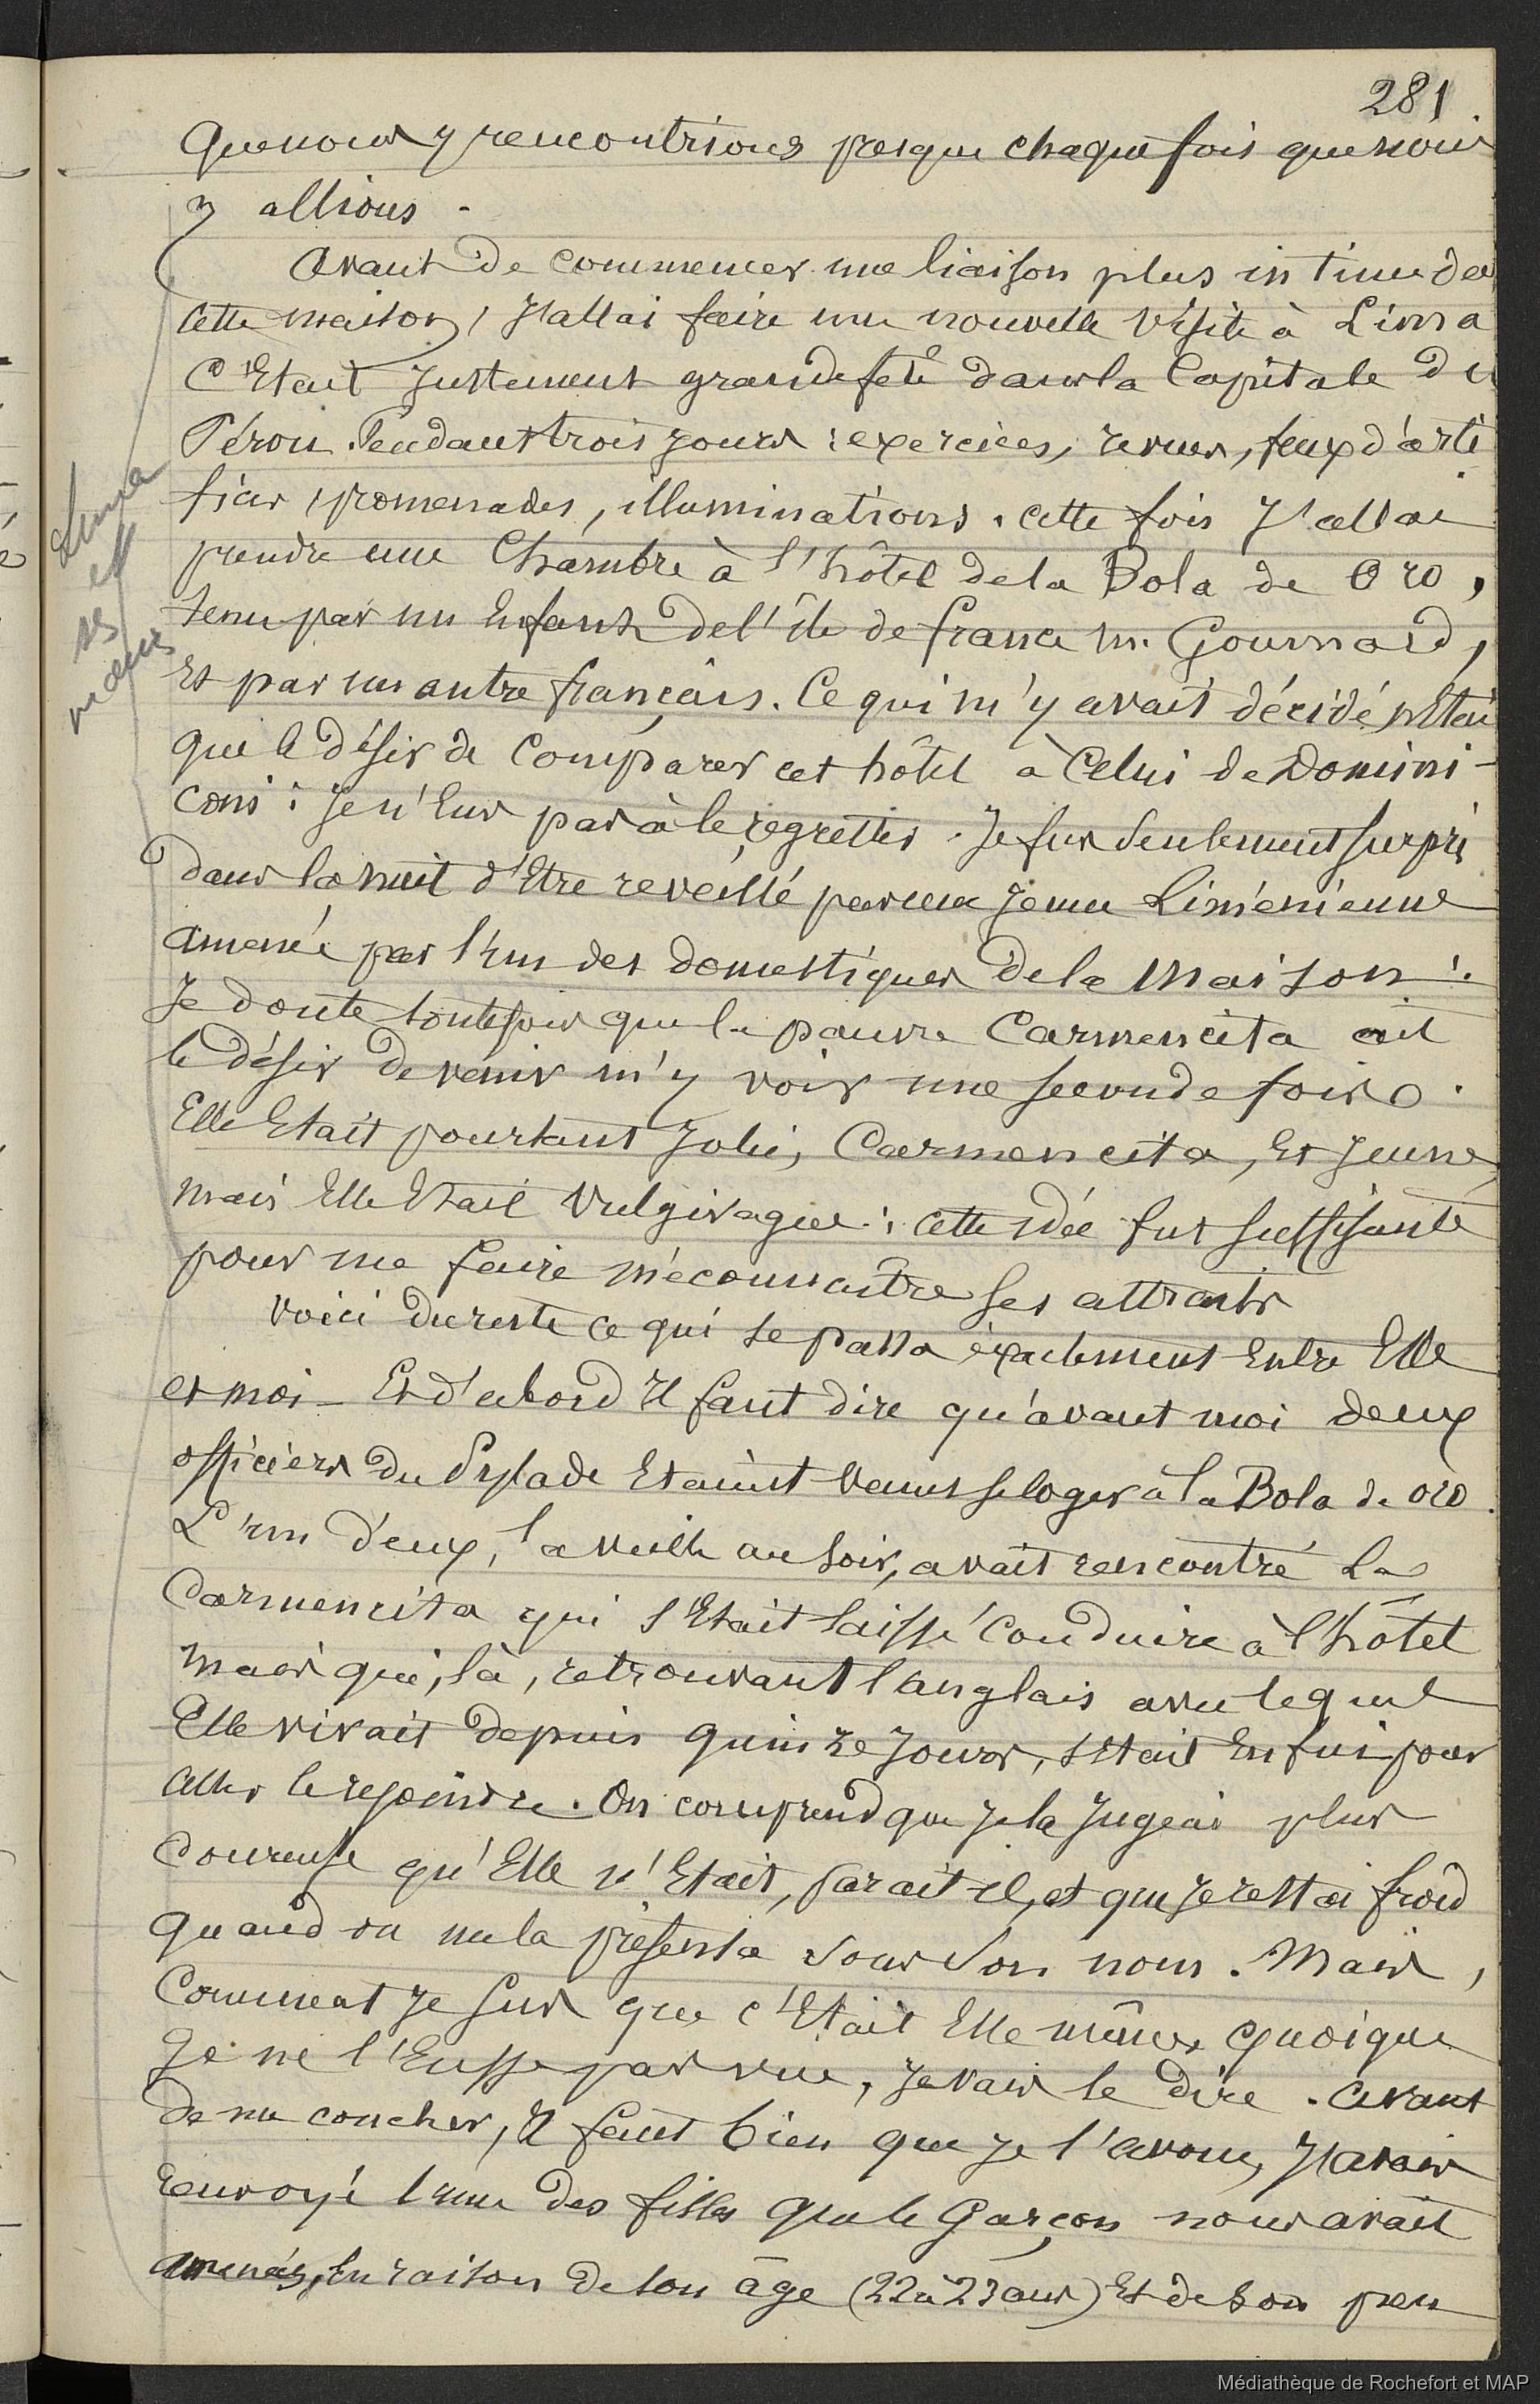 281
que nous y rencontrions presque chaque fois que nous
y allions.
Avant de commencer une liaison plus intime de
cette maison, J'allai faire une nouvelle visite à Lima
C'Etait Justement grande fête dans la Capitale du
Pérou. Pendant trois jours : exercices, revues, feux d'arti
fices, promenades, illuminations. cette fois J'allai
prendre une Chambre à l'hôtel de la Bola de Oro,
tenu par un Enfant de l'île de france M. Gournard,
Et par un autre français. Ce qui m'y avait décidé n'Etait
que le désir de Comparer cet hôtel à Celui de Domini-
coni : Je n'Eus pas à le regretter. Je fus Seulement surpris
dans la nuit d'Etre reveillé par une Jeune Liménienne
amenée par l'un des domestiques de la Maison :
Je doute toutefois que la pauvre Carmencita ait
le désir de venir m'y voir une seconde fois.
Elle Etait pourtant Jolie, Carmencita, Et Jeune,
mais Elle Etait Vulgivague : cette idée fut suffisante
pour me faire méconnaître ses attraits
Voici du reste ce qui se passa exactement Entre Elle
et moi - Et d'abord Il faut dire qu'avant moi deux
officiers du Pylade Etaient Venus se loger à la Bola de oro.
L'un d'eux, la veille au soir, avait rencontré La
Carmencita qui s'Etait laissé Conduire à l'hôtel
mais qui, là, retrouvant l'anglais avec lequel
Elle vivait depuis quinze Jours, s'Etait Enfui pour
aller le rejoindre. On comprend que Je la Jugeai plus
Coureuse qu'Elle n'Etait, parait il, et que Je restai froid
quand on me la présenta sous son nom. Mais,
Comment Je sus que c'Etait Elle même, quoique
Je ne l'Eusse pas vue, Je vais le dire. Avant
de me coucher, Il faut bien que je l'avoue, J'avais
renvoyé l'une des filles que le Garçon nous avait
amenées, En raison de son âge (22 à 23 ans) Et de son peu
Lima
et
ses
mœurs
Médiathèque de Rochefort et MAP